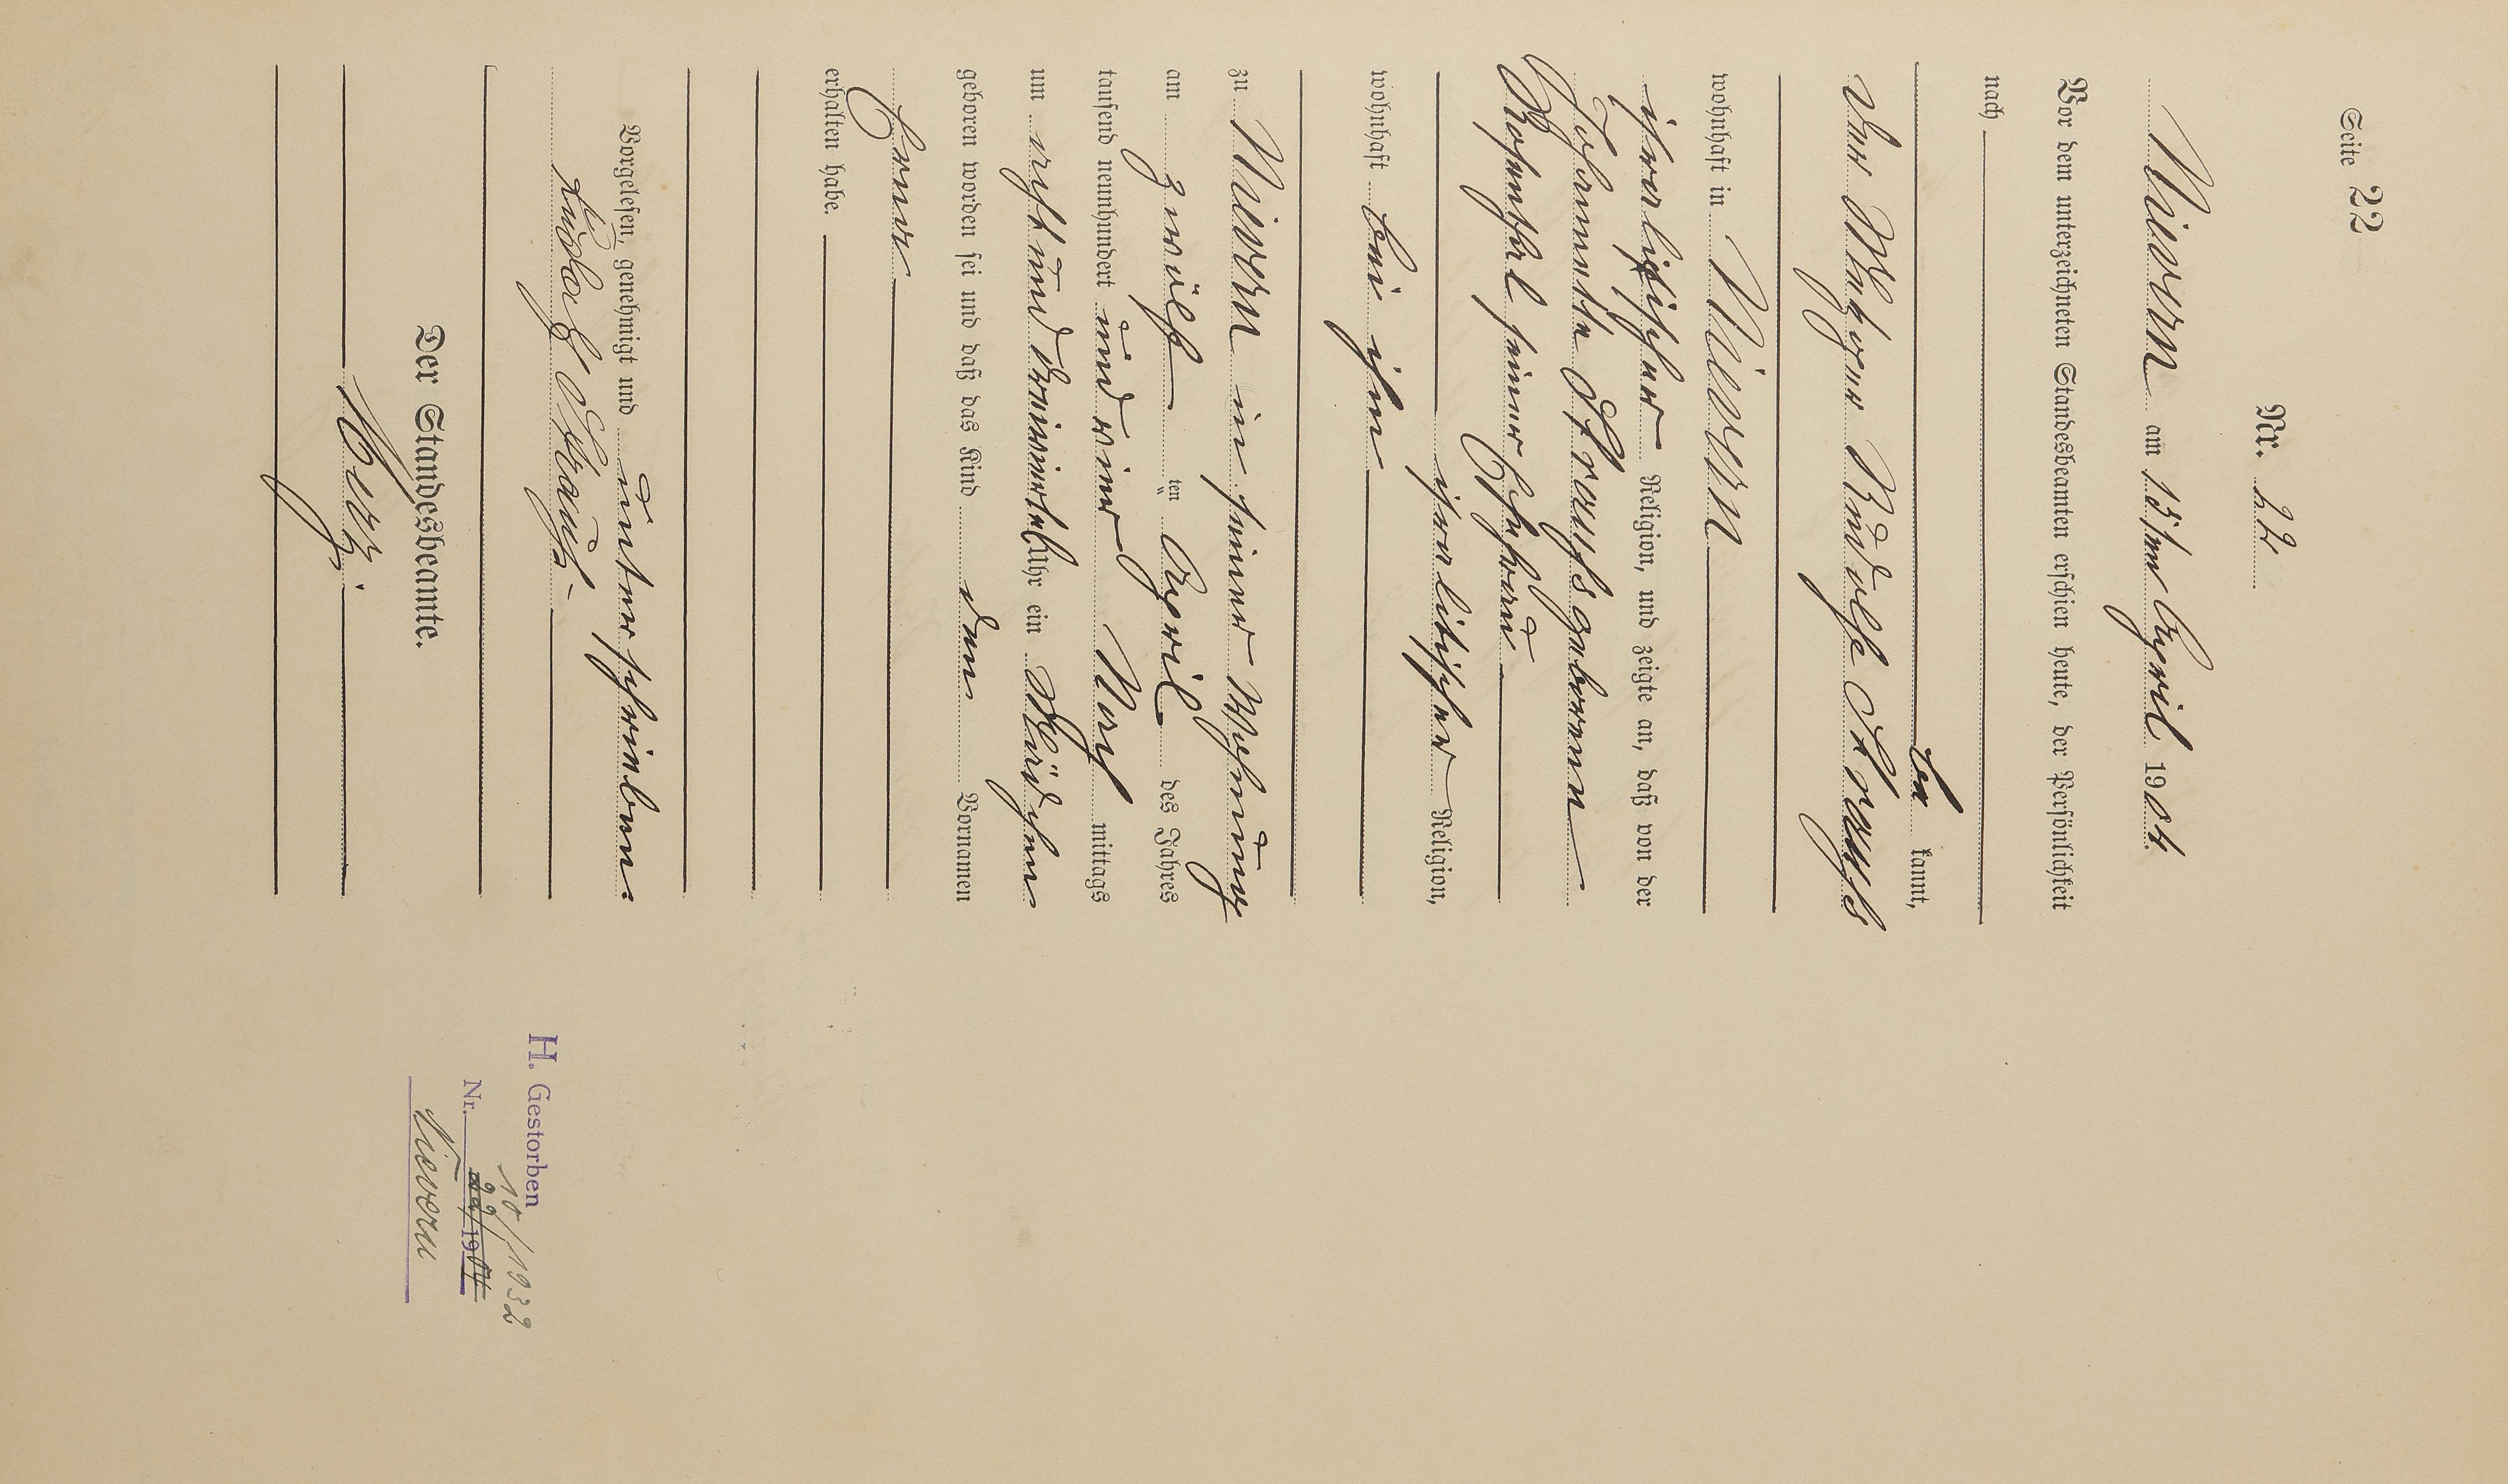 Seite 22
Nr. 22
Nievern am 15ten April 1904.
Vor dem unterzeichneten Standesbeamten erschien heute, der Persönlichkeit
nach
be kannt,
der Metzger Rudolf Strauß
wohnhaft in Nievern
israelitischer Religion, und zeigte an, daß von der
Johannette Strauß geborenen
Rosenthal seiner Ehefrau
israelitischer Religion,
wohnhaft bei ihm
zu Nievern in seiner Wohnung
am zwölf ten April des Jahres
tausend neunhundert und vier Nach mittags
um acht und dreiviertel Uhr ein Mädchen
geboren worden sei und daß das Kind den Vornamen
Erna
erhalten habe.
Vorgelesen, genehmigt und unterschrieben:
Rudolf Strauß.
Der Standesbeamte.
H. Gestorben
10/1932
Nr. 22/1904
Nievern